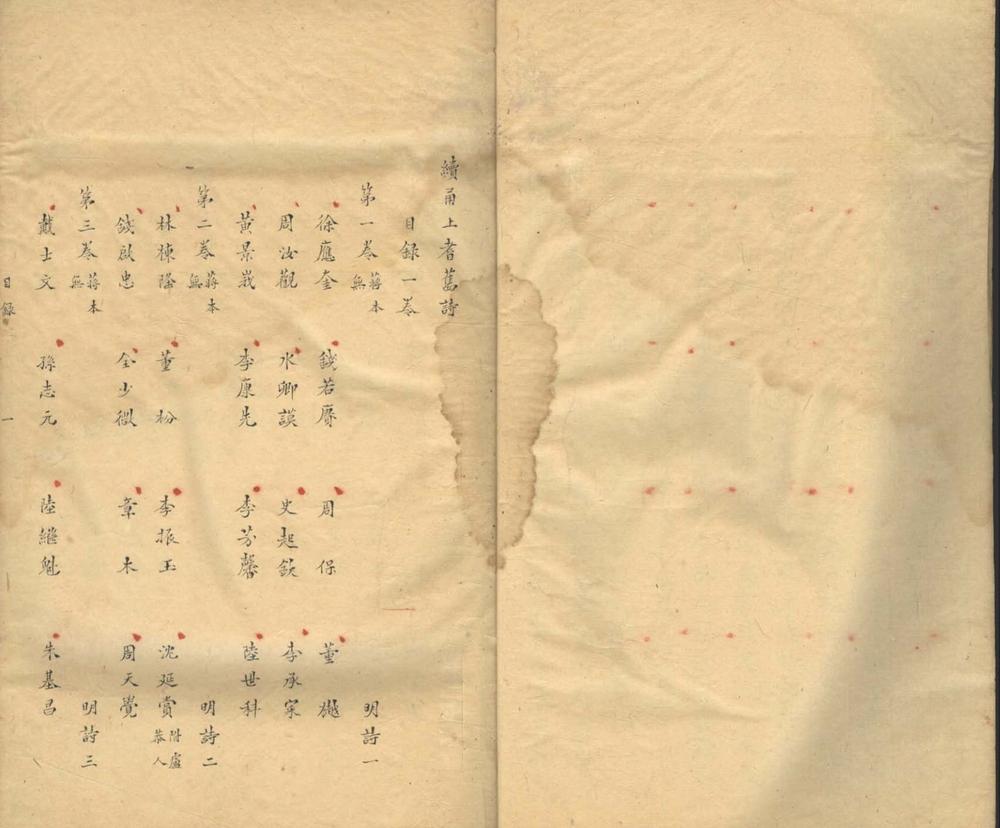 續甬上耆舊詩
目録一卷
第一卷 蔣本無 明詩一
徐應奎 錢若賡 周保 董樾
周汝觀 水卿謨 史起欽 李承寀
黄景峩 李康先 李芬馨 陸世科
第二卷 蔣本無 明詩二
林棟隆 董枌 李振玉 沈延賞 附盧恭人
錢啟忠 全少微 章木 周天覺
第三卷 蔣本無 明詩三
戴士文 孫志元 陸繼魁 朱基昌
目録 一